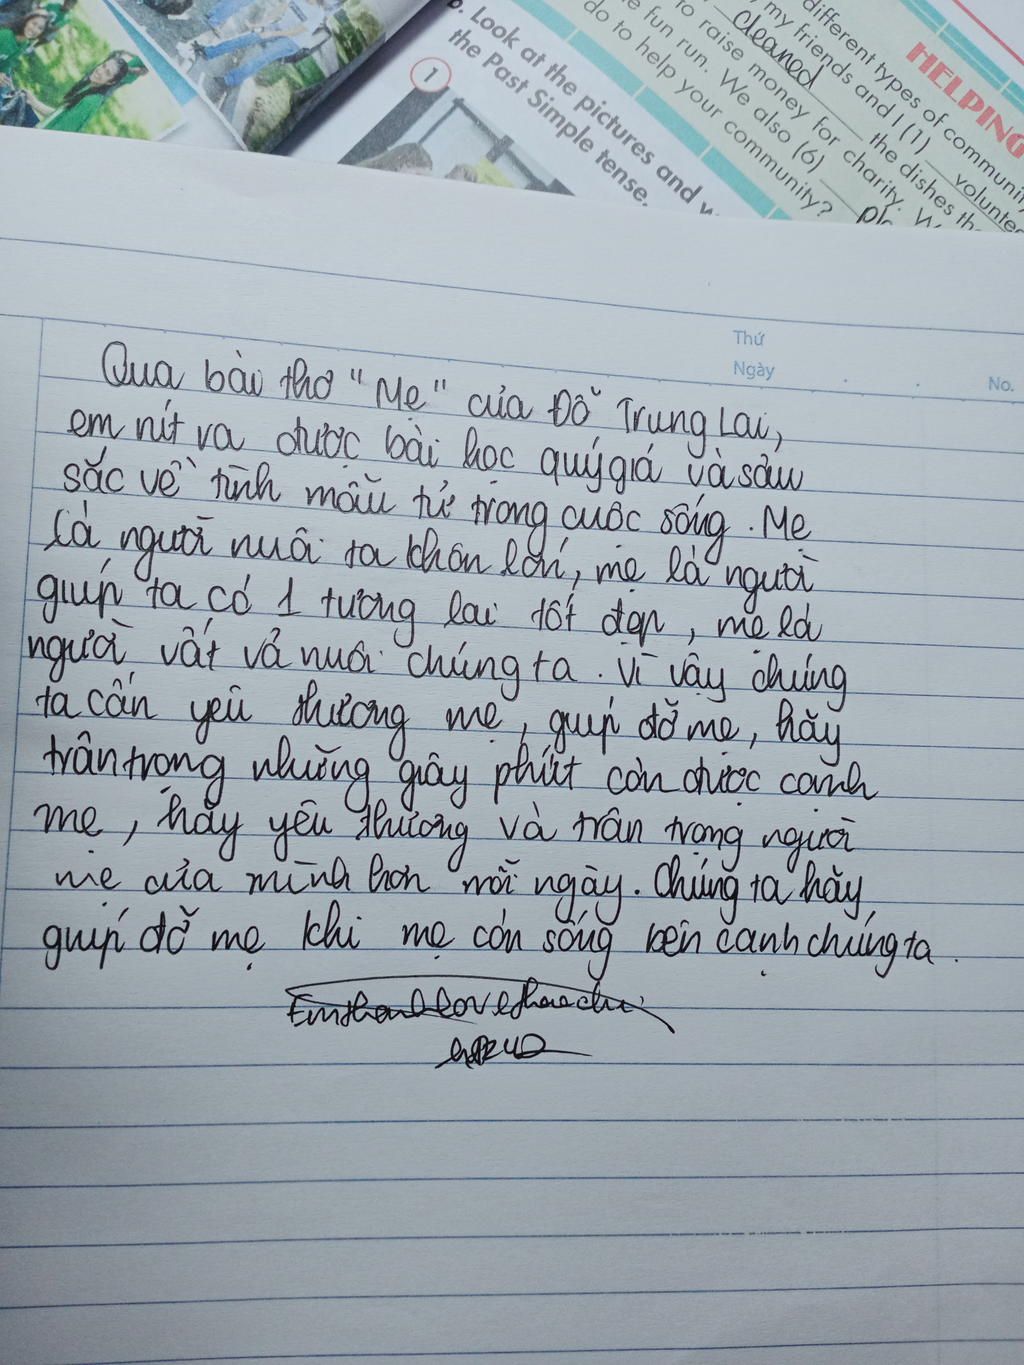 b. Look at the pictures and w
the Past Simple tense.
1
HELPING
different types of community
, my friends and I (1) ___ volunteer
cleaned ___ the dishes th
to raise money for charity. W
e fun run. We also (6) ___ pl
do to help your community?
Thứ
Ngày . .
No.
Qua bài thơ "Mẹ" của Đỗ Trung Lai,
em rút ra được bài học quý giá và sâu
sắc về tình mẫu tử trong cuộc sống. Mẹ
là người nuôi ta khôn lớn, mẹ là người
giúp ta có 1 tương lai tốt đẹp, mẹ là
người vất vả nuôi chúng ta. Vì vậy chúng
ta cần yêu thương mẹ, giúp đỡ mẹ, hãy
trân trọng những giây phút còn được cạnh
mẹ, hãy yêu thương và trân trọng người
mẹ của mình hơn mỗi ngày. Chúng ta hãy
giúp đỡ mẹ khi mẹ còn sống bên cạnh chúng ta.